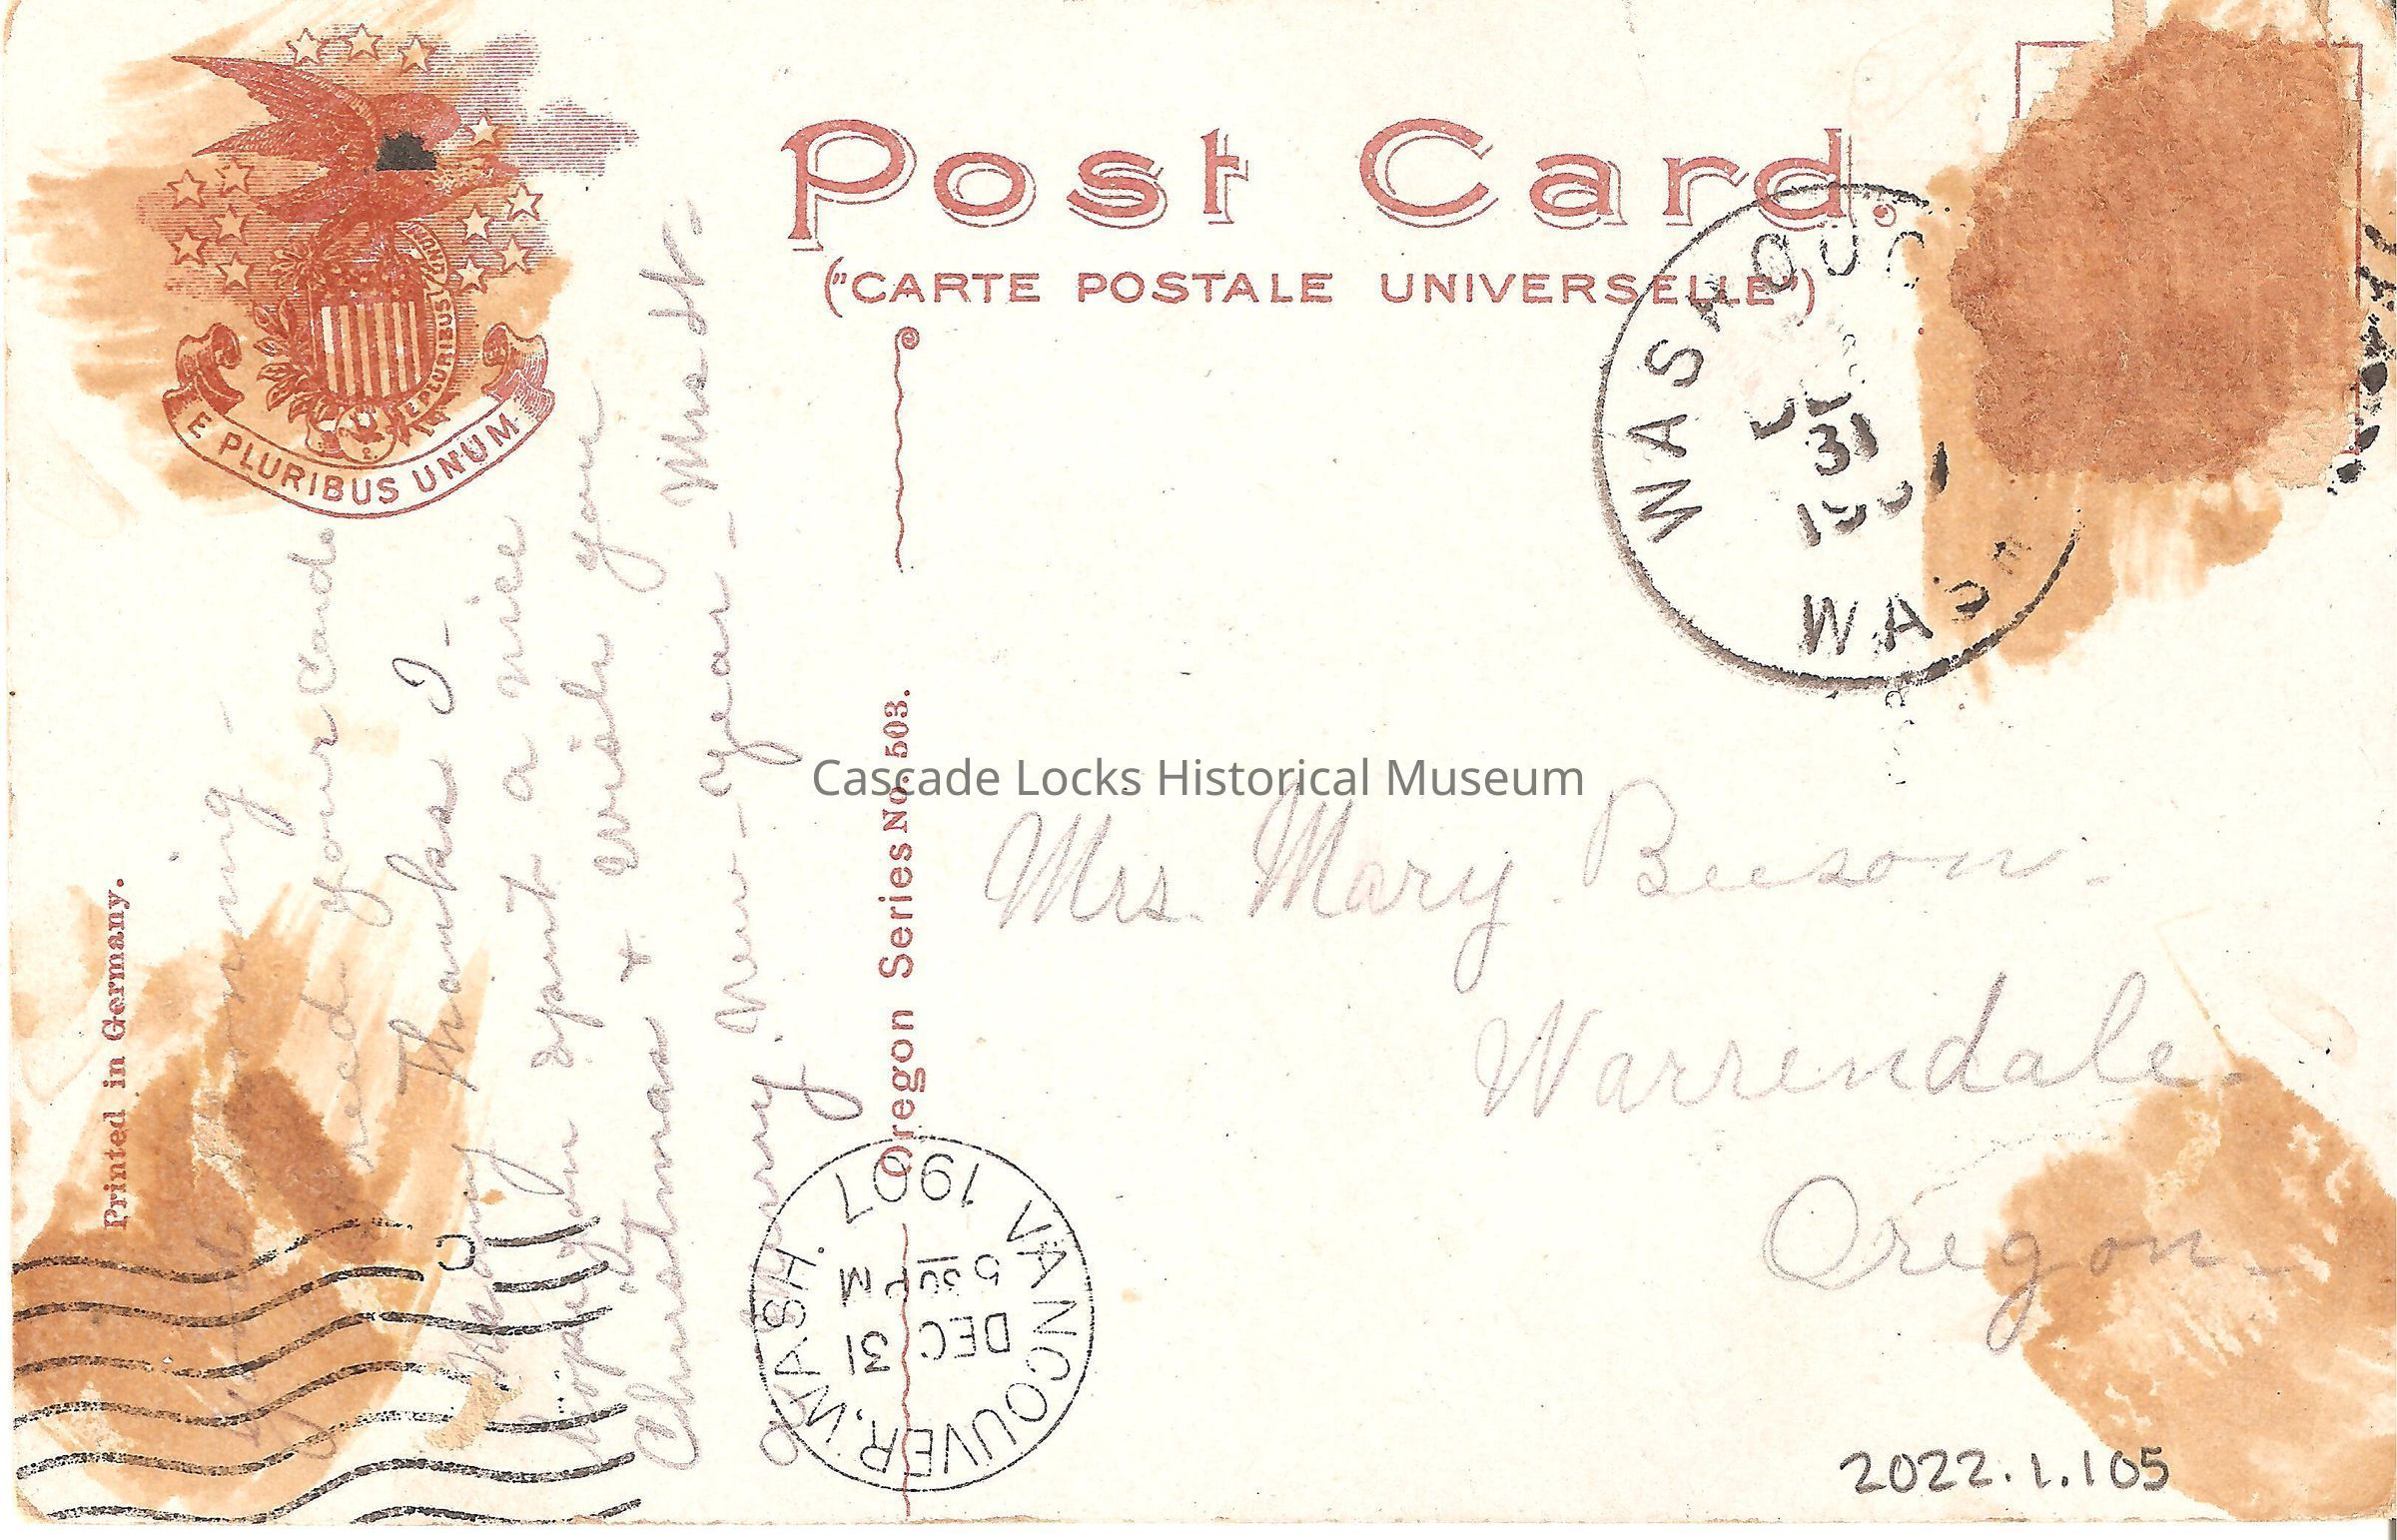 Post Card.
("CARTE POSTALE UNIVERSELLE")
E PLURIBUS UNUM
E PLURIBUS UNUM
WASHOU
31
WASH
Printed in Germany.
Oregon Series No. 503.
your card
Many Thanks I
spent a nice
Christmas & wish you
a Merry New-Year - Mrs H.
Cascade Locks Historical Museum
Mrs. Mary Beeson.
Warrendale.
Oregon.
VANCOUVER, WASH.
DEC 31
5 30 P M
1907
2022.1.105